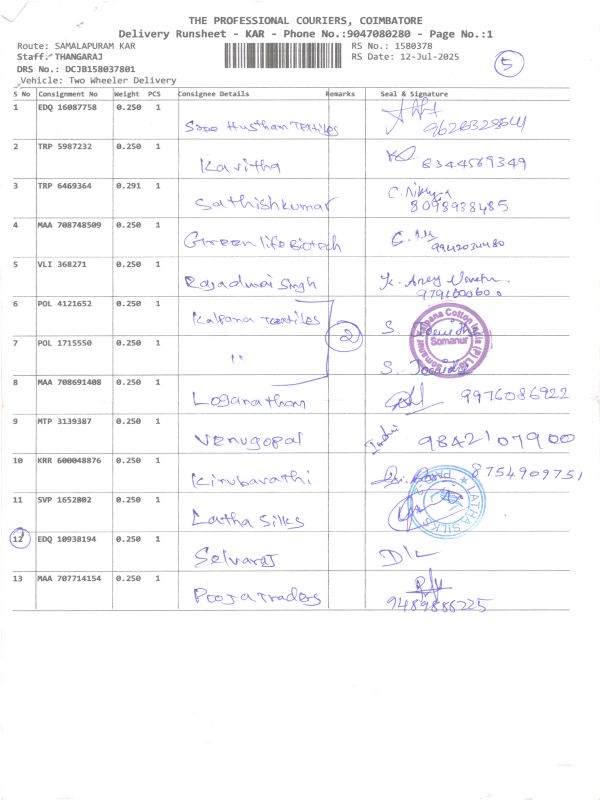 THE PROFESSIONAL COURIERS, COIMBATORE
Delivery Runsheet - KAR - Phone No.:9047080280 - Page No.:1
Route: SAMALAPURAM KAR RS No.: 1580378
Staff: THANGARAJ RS Date: 12-Jul-2025
5
DRS No.: DCJB158037801
Vehicle: Two Wheeler Delivery
S No Consignment No Weight PCS Consignee Details Remarks Seal & Signature
1 EDQ 16087758 0.250 1 Textiles
2 TRP 5987232 0.250 1 Kavitha 8344569349
3 TRP 6469364 0.291 1 Sathishkumar 8098938485
4 MAA 708748509 0.250 1 Green life Biotech 9942034480
5 VLI 368271 0.250 1 Singh
6 POL 4121652 0.250 1 Kalpana Textiles 2 S.
7 POL 1715550 0.250 1 " S.
Somanur
8 MAA 708691408 0.250 1 Loganathan 9976086922
9 MTP 3139387 0.250 1 Venugopal 9842107900
10 KRR 600048876 0.250 1 Kirubavathi 8754909751
11 SVP 1652802 0.250 1 Latha Silks
LATHA SILKS
12 EDQ 10938194 0.250 1 Selvaraj D/L
13 MAA 707714154 0.250 1 Pooja Traders 9489886225